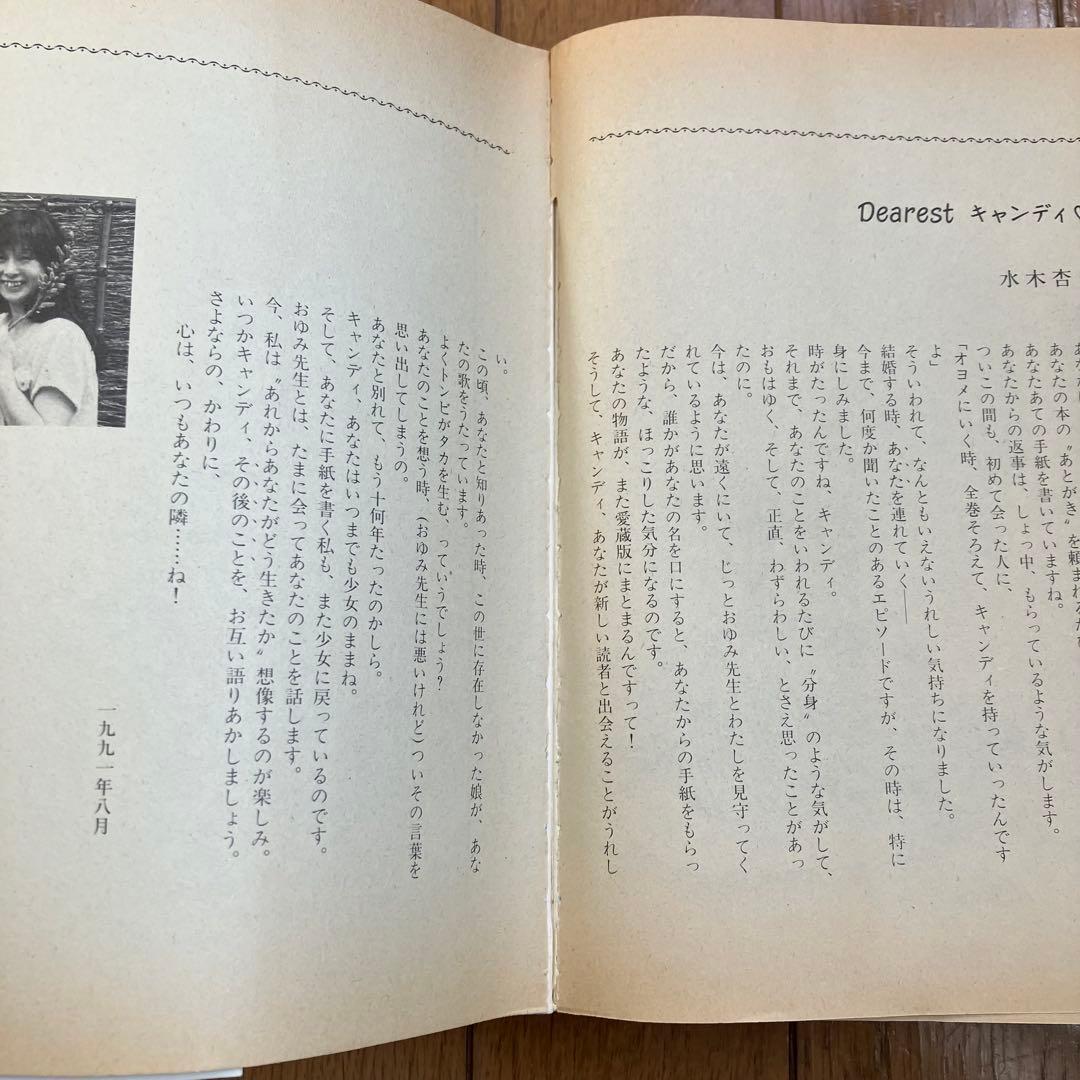 Dearest キャンディ♡
水木杏
あなたの本の〝あとがき〟を頼まれるた
あなたあての手紙を書いていますね。
あなたからの返事は、しょっ中、もらっているような気がします。
ついこの間も、初めて会った人に、
「オヨメにいく時、全巻そろえて、キャンディを持っていったんです
よ」
そういわれて、なんともいえないうれしい気持ちになりました。
結婚する時、あなたを連れていく――
今まで、何度か聞いたことのあるエピソードですが、その時は、特に
身にしみました。
時がたったんですね、キャンディ。
それまで、あなたのことをいわれるたびに〝分身〟のような気がして、
おもはゆく、そして、正直、わずらわしい、とさえ思ったことがあっ
たのに。
今は、あなたが遠くにいて、じっとおゆみ先生とわたしを見守ってく
れているように思います。
だから、誰かがあなたの名を口にすると、あなたからの手紙をもらっ
たような、ほっこりした気分になるのです。
あなたの物語が、また愛蔵版にまとまるんですって！
そうして、キャンディ、あなたが新しい読者と出会えることがうれし
い。
この頃、あなたと知りあった時、この世に存在しなかった娘が、あな
たの歌をうたっています。
よくトンビがタカを生む、っていうでしょう？
あなたのことを想う時、（おゆみ先生には悪いけれど）ついその言葉を
思い出してしまうの。
あなたと別れて、もう十何年たったのかしら。
キャンディ、あなたはいつまでも少女のままね。
そして、あなたに手紙を書く私も、また少女に戻っているのです。
おゆみ先生とは、たまに会ってあなたのことを話します。
今、私は〝あれからあなたがどう生きたか〟想像するのが楽しみ。
いつかキャンディ、その後のことを、お互い語りあかしましょう。
さよならの、かわりに、
心は、いつもあなたの隣……ね！
一九九一年八月